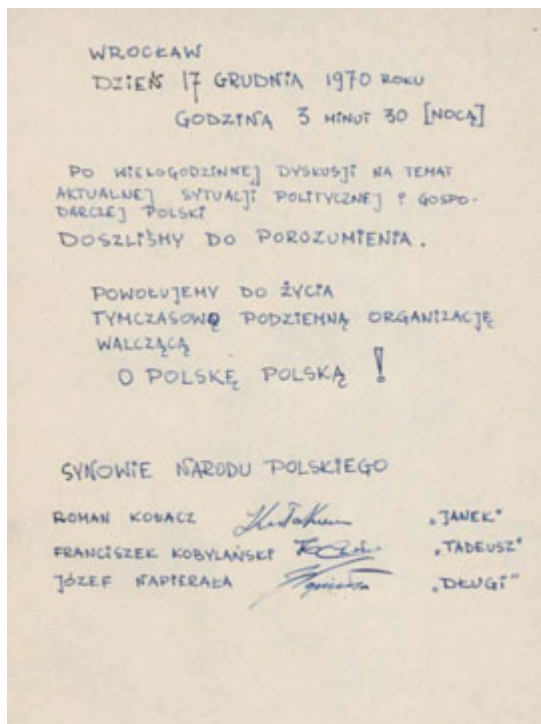 WROCŁAW
DZIEŃ 17 GRUDNIA 1970 ROKU
GODZINA 3 MINUT 30 [NOCĄ]
PO WIELOGODZINNEJ DYSKUSJI NA TEMAT
AKTUALNEJ SYTUACJI POLITYCZNEJ I GOSPO-
DARCZEJ POLSKI
DOSZLIŚMY DO POROZUMIENIA.
POWOŁUJEMY DO ŻYCIA
TYMCZASOWĄ PODZIEMNĄ ORGANIZACJĘ
WALCZĄCĄ
O POLSKĘ POLSKĄ !
SYNOWIE NARODU POLSKIEGO
ROMAN KOŁACZ „JANEK"
FRANCISZEK KOBYLAŃSKI „TADEUSZ"
JÓZEF NAPIERAŁA „DŁUGI"